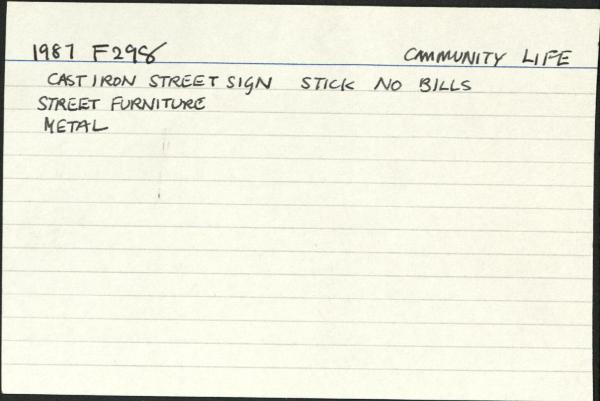 1987 F298 CAMMUNITY LIFE
CAST IRON STREET SIGN STICK NO BILLS
STREET FURNITURE
METAL